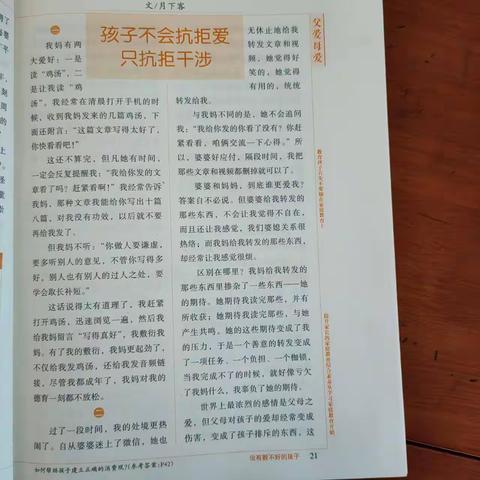 文/月下客
孩子不会抗拒爱
只抗拒干涉
父爱母爱
一
我妈有两
大爱好：一是
读“鸡汤”，二
是让我读“鸡
汤”。我经常在清晨打开手机的时
候，收到我妈发来的几篇鸡汤，下
面还附言：“这篇文章写得太好了，
你快看看吧！”
这还不算完，但凡她有时间，
一定会反复提醒我：“我给你发的文
章看了吗？赶紧看啊！”我经常告诉
我妈，那种文章我能给你写出十篇
八篇，对我没有功效，以后就不要
再给我发了。
但我妈不听：“你做人要谦虚，
要多听别人的意见，不管你写得多
好。别人也有别人的过人之处，要学
会取长补短。”
这话说得太有道理了，我赶紧
打开鸡汤，迅速浏览一遍，然后我
给我妈留言“写得真好”，我敷衍我
妈。有了我的敷衍，我妈更起劲了，
不仅给我发鸡汤，还给我发音频链
接，尽管我都成年了，我妈对我的
德育一刻都不放松。
二
过了一段时间，我的处境更热
闹了。自从婆婆迷上了微信，她也
无休止地给我
转发文章和视
频，她觉得好
笑的，她觉得
有用的，统统
转发给我。
与我妈不同的是，她不会追问
我：“我给你发的你看了没有？你赶
紧看看，咱俩交流一下心得。”所
以，婆婆好应付，隔段时间，我把
那些文章和视频都删掉就可以了。
婆婆和妈妈，到底谁更爱我？
答案自不必说。但婆婆给我转发的
那些东西，不会让我觉得不自在，
而且还让我感觉，我们婆媳关系很
热络；而我妈给我转发的那些东西，
却经常让我感觉很烦。
区别在哪里？我妈给我转发的
那些东西里掺杂了一些东西——她
的期待。她期待我读完那些，并有
所收获；她期待我读完那些，与她
产生共鸣。她的这些期待变成了我
的压力，于是一个善意的转发变成
了一项任务、一个负担、一个枷锁，
当我完成不了的时候，就好像亏欠
了我妈什么，我辜负了她的期待。
世界上最浓烈的感情是父母之
爱，但父母对孩子的爱却经常变成
伤害，变成了孩子排斥的东西，这
如何帮助孩子建立正确的消费观？(参考答案：P42)
没有教不好的孩子
21